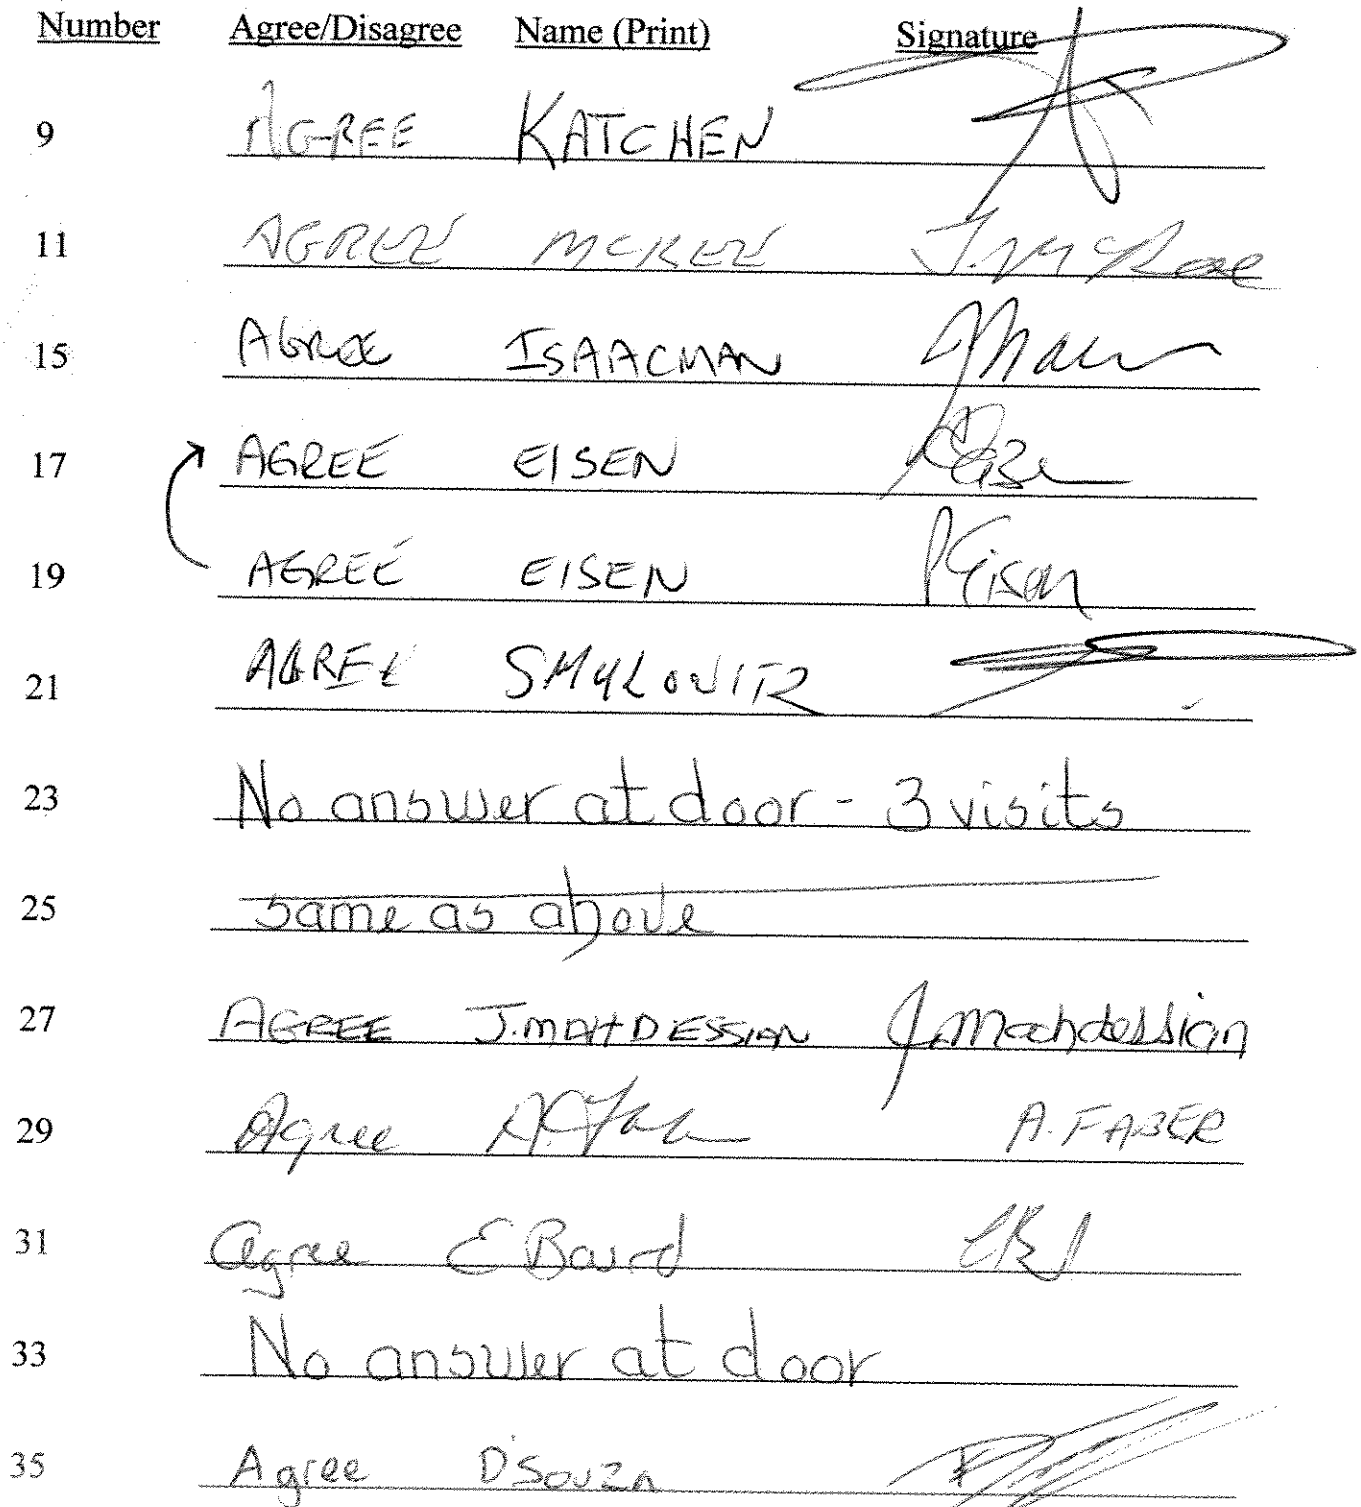 Number Agree/Disagree Name (Print) Signature
9 AGREE KATCHEN
11 AGREE MCREE J. McRae
15 AGREE ISAACMAN
17 AGREE EISEN
19 AGREE EISEN P Eisen
21 AGREE SMYLOVITZ
23 No answer at door - 3 visits
25 same as above
27 AGREE J. MAHDESSIAN J. Mahdessian
29 Agree A. FABER
31 Agree E Baird
33 No answer at door
35 Agree D'Souza